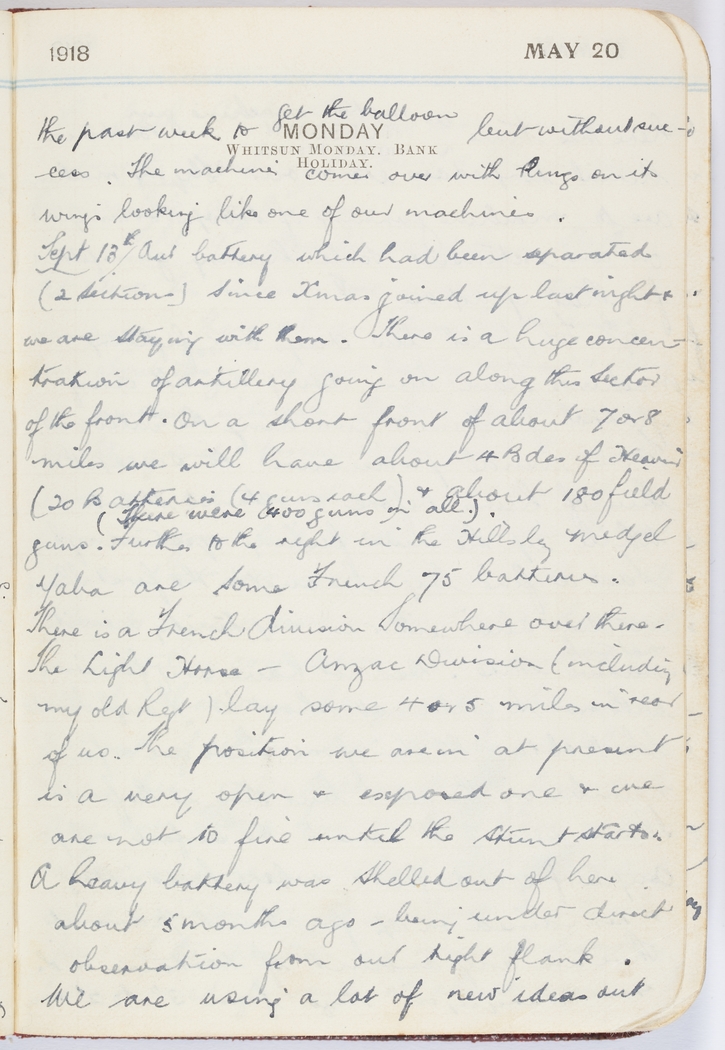 1918 MAY 20
MONDAY
WHITSUN MONDAY. BANK
HOLIDAY.
the past week to get the balloon but without suc-
cess. The machine comes over with Rings on its
wings looking like one of our machines.
Sept 13th/ Our battery which had been separated
(2 sections) since Xmas joined up last night &
we are staying with them. There is a huge concen-
tration of artillery going on along this sector
of the front. On a short front of about 7 or 8
miles we will have about 4 Bdes of Heavies
(20 Batteries (4 guns each) & about 180 field
(There were 400 guns in all.).
guns. Further to the right in the Hills by Medjel
Yaba are some French 75 batteries.
There is a French division somewhere over there.
The Light Horse - Anzac Division (including
my old Regt) lay some 4 or 5 miles in rear
of us. The position we are in at present
is a very open & exposed one & we
are not to fire until the stunt starts.
A heavy battery was shelled out of here
about 5 months ago - being under direct
observation from our right flank.
We are using a lot of new ideas out